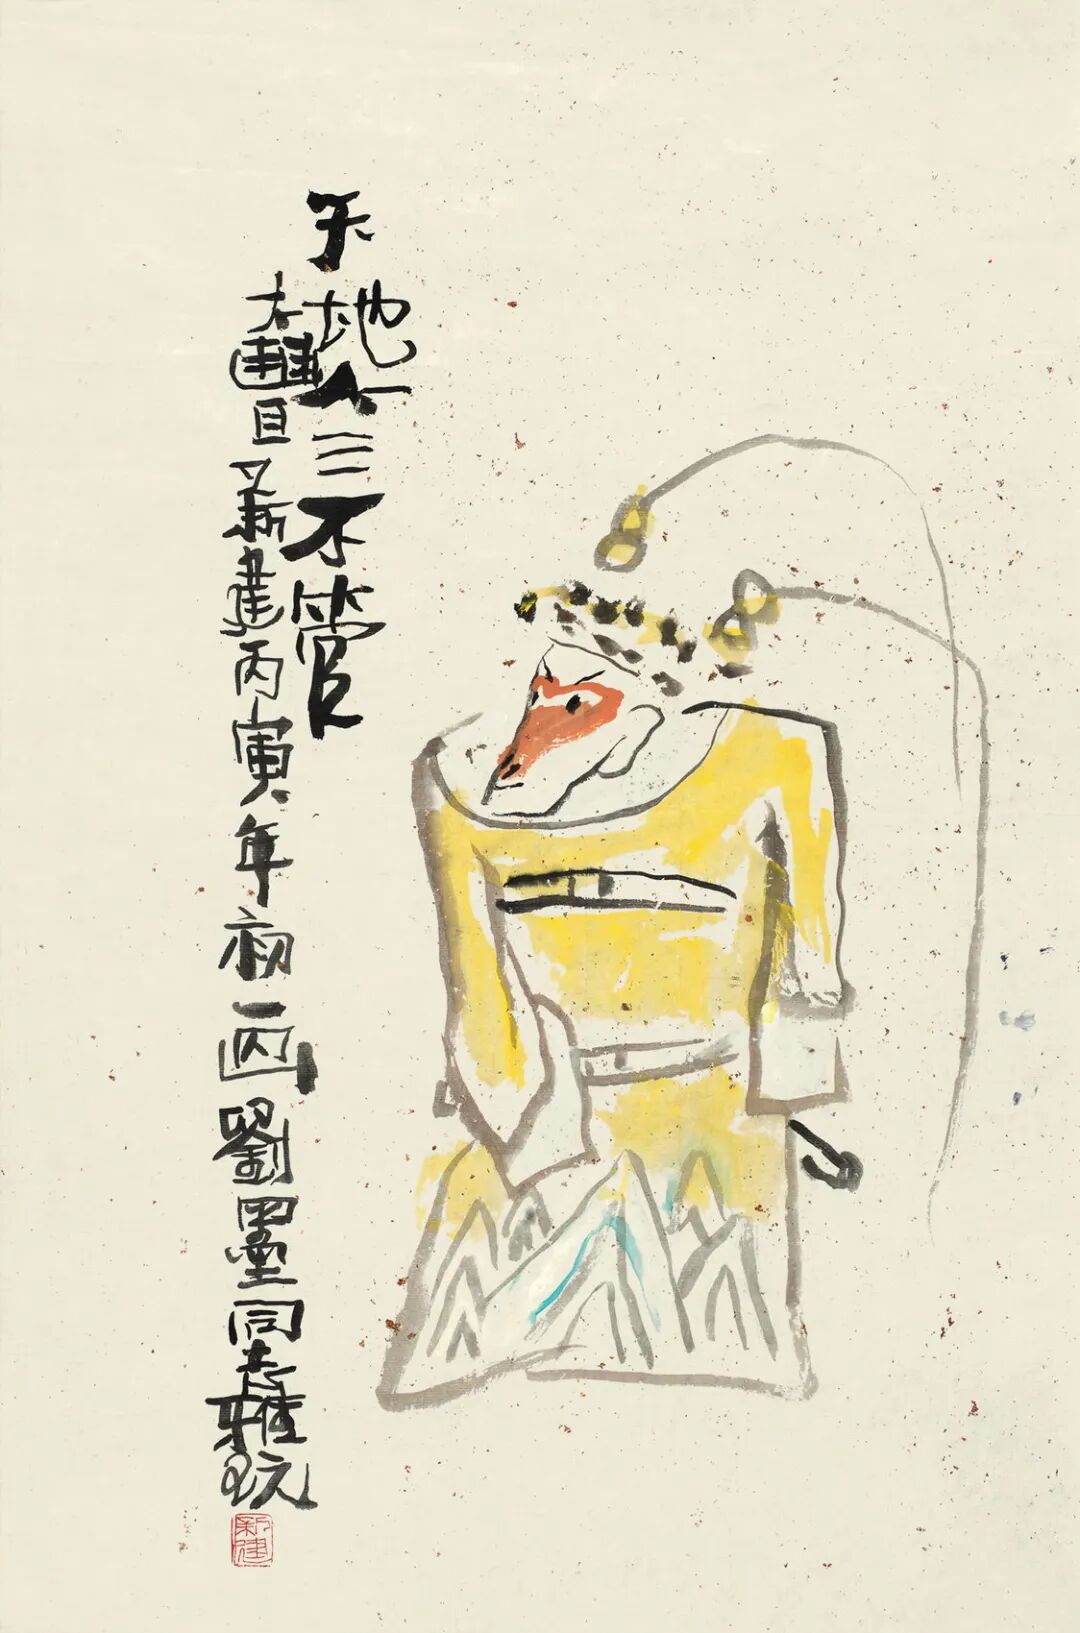 天地人三不管
大新建丙寅年初画劉墨同志雅玩
新建